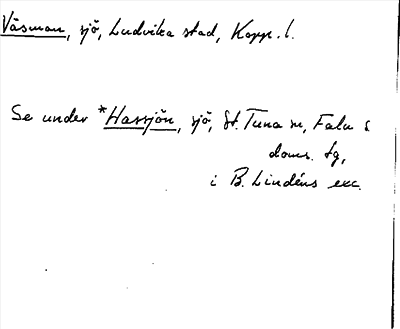 Väsman, sjö, Ludvika stad, Kopp. l.
Se under *Hassjön, sjö, St. Tuna sn, Falu s
doms. tg,
i B. Lindéns exc.